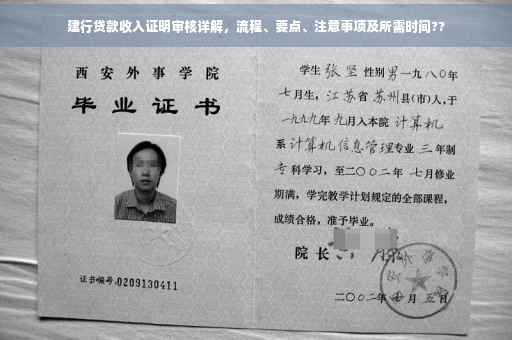 建行贷款收入证明审核详解，流程、要点、注意事项及所需时间??
西安外事学院
毕业证书
证书编号:0209130411
学生张坚性别男一九八〇年
七月生，江苏省苏州县(市)人，于
一九九九年九月入本院计算机
系计算机信息管理专业三年制
专科学习，至二〇〇二年七月修业
期满，学完教学计划规定的全部课程，
成绩合格，准予毕业。
院长
二〇〇二年七月五日